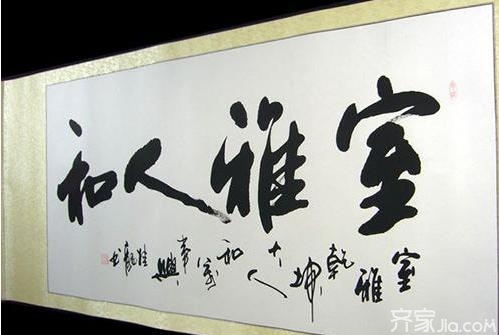 室雅人和
室雅乾坤大人和家事興
齐家Jia.com